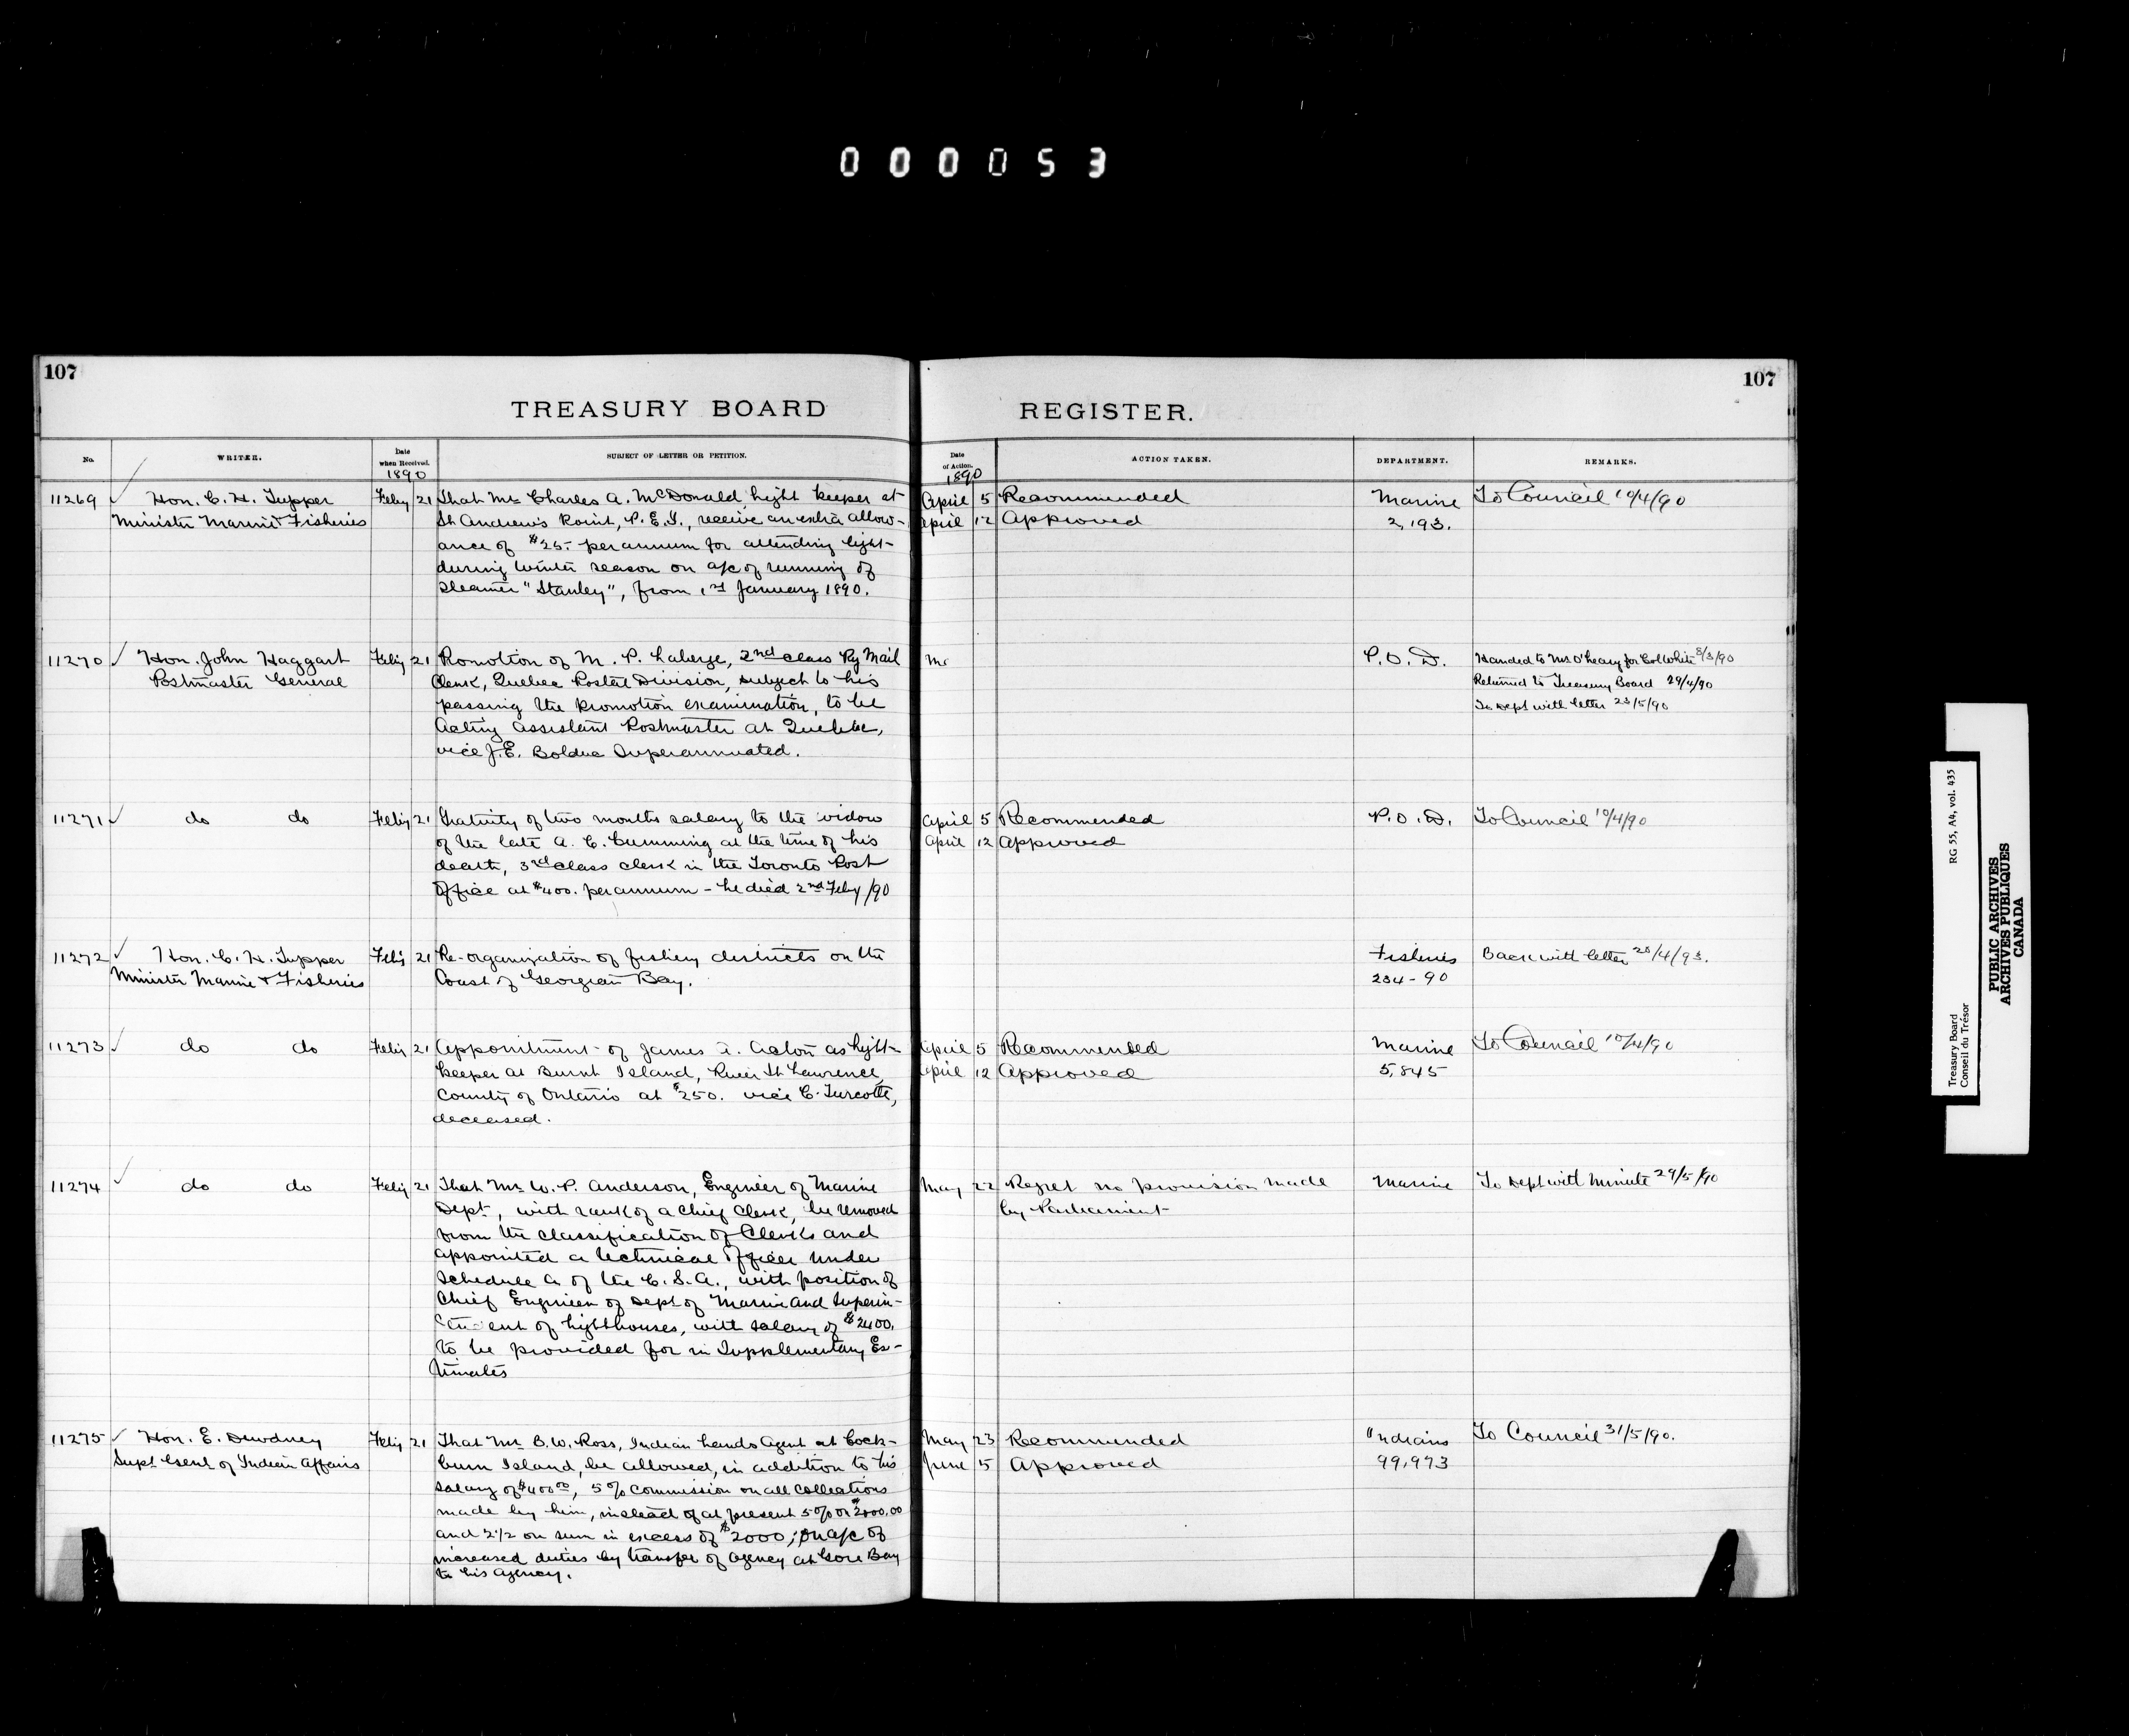 000053
107
TREASURY BOARD
No.
WRITER.
Date
when Received.
1890
SUBJECT OF LETTER OR PETITION.
11269 Hon. C. H. Tupper
Minister Marine & Fisheries
Feby 21
That Mr Charles A. McDonald light keeper at
St Andrew's Point, P.E.I., receive an extra allow-
ance of $25.- per annum for attending light
during winter season on a/c of running of
Steamer "Stanley", from 1st January 1890.
11270 Hon. John Haggart
Postmaster General
Feby 21
Promotion of M. P. Laberge, 2nd class Ry Mail
Clerk, Quebec Postal Division, subject to his
passing the promotion examination, to be
Acting Assistant Postmaster at Quebec,
vice J. E. Bolduc Superannuated.
11271 do do
Feby 21
Gratuity of two months salary to the widow
of the late A. C. Cumming at the time of his
death, 3rd class clerk in the Toronto Post
Office at $400. per annum - he died 2nd Feby /90
11272 Hon. C. H. Tupper
Minister Marine & Fisheries
Feby 21
Re-organization of fishery districts on the
Coast of Georgian Bay.
11273 do do
Feby 21
Appointment of James A. Acton as light-
keeper at Burnt Island, River St Lawrence,
County of Ontario at $250. vice C. Turcotte,
deceased.
11274 do do
Feby 21
That Mr W. P. Anderson, Engineer of Marine
Dept, with rank of a Chief Clerk, be removed
from the classification of Clerks and
appointed a technical Officer under
Schedule A of the C.S.A., with position of
Chief Engineer of Dept of Marine and Superin-
tendent of lighthouses, with salary of $2400.
to be provided for in Supplementary Es-
timates
11275 Hon. E. Dewdney
Supt Genl of Indian Affairs
Feby 21
That Mr B. W. Ross, Indian Lands Agent at Cock-
burn Island, be allowed, in addition to his
salary of $400.00, 5% commission on all collections
made by him, instead of at present 5% on $2000.00
and 2½ on sum in excess of $2000; on a/c of
increased duties by transfer of agency at Gore Bay
to his agency.
107
REGISTER.
Date
of Action.
1890
ACTION TAKEN.
DEPARTMENT.
REMARKS.
April 5 Recommended
April 12 Approved
Marine
2,193.
To Council 10/4/90
P.O.D.
Handed to Mr O'Leary for Col White 8/3/90
Returned to Treasury Board 29/4/90
To Dept with letter 23/5/90
April 5 Recommended
April 12 Approved
P.O.D.
To Council 10/4/90
Fisheries
234-90
Back with letter 28/4/93.
April 5 Recommended
April 12 Approved
Marine
5,845
To Council 10/4/90
May 22 Regret no provision made
by Parliament
Marine
To Dept with Minute 29/5/90
May 23 Recommended
June 5 Approved
Indians
99,973
To Council 31/5/90.
Treasury Board
Conseil du Trésor
RG 55, A4, vol. 435
PUBLIC ARCHIVES
ARCHIVES PUBLIQUES
CANADA